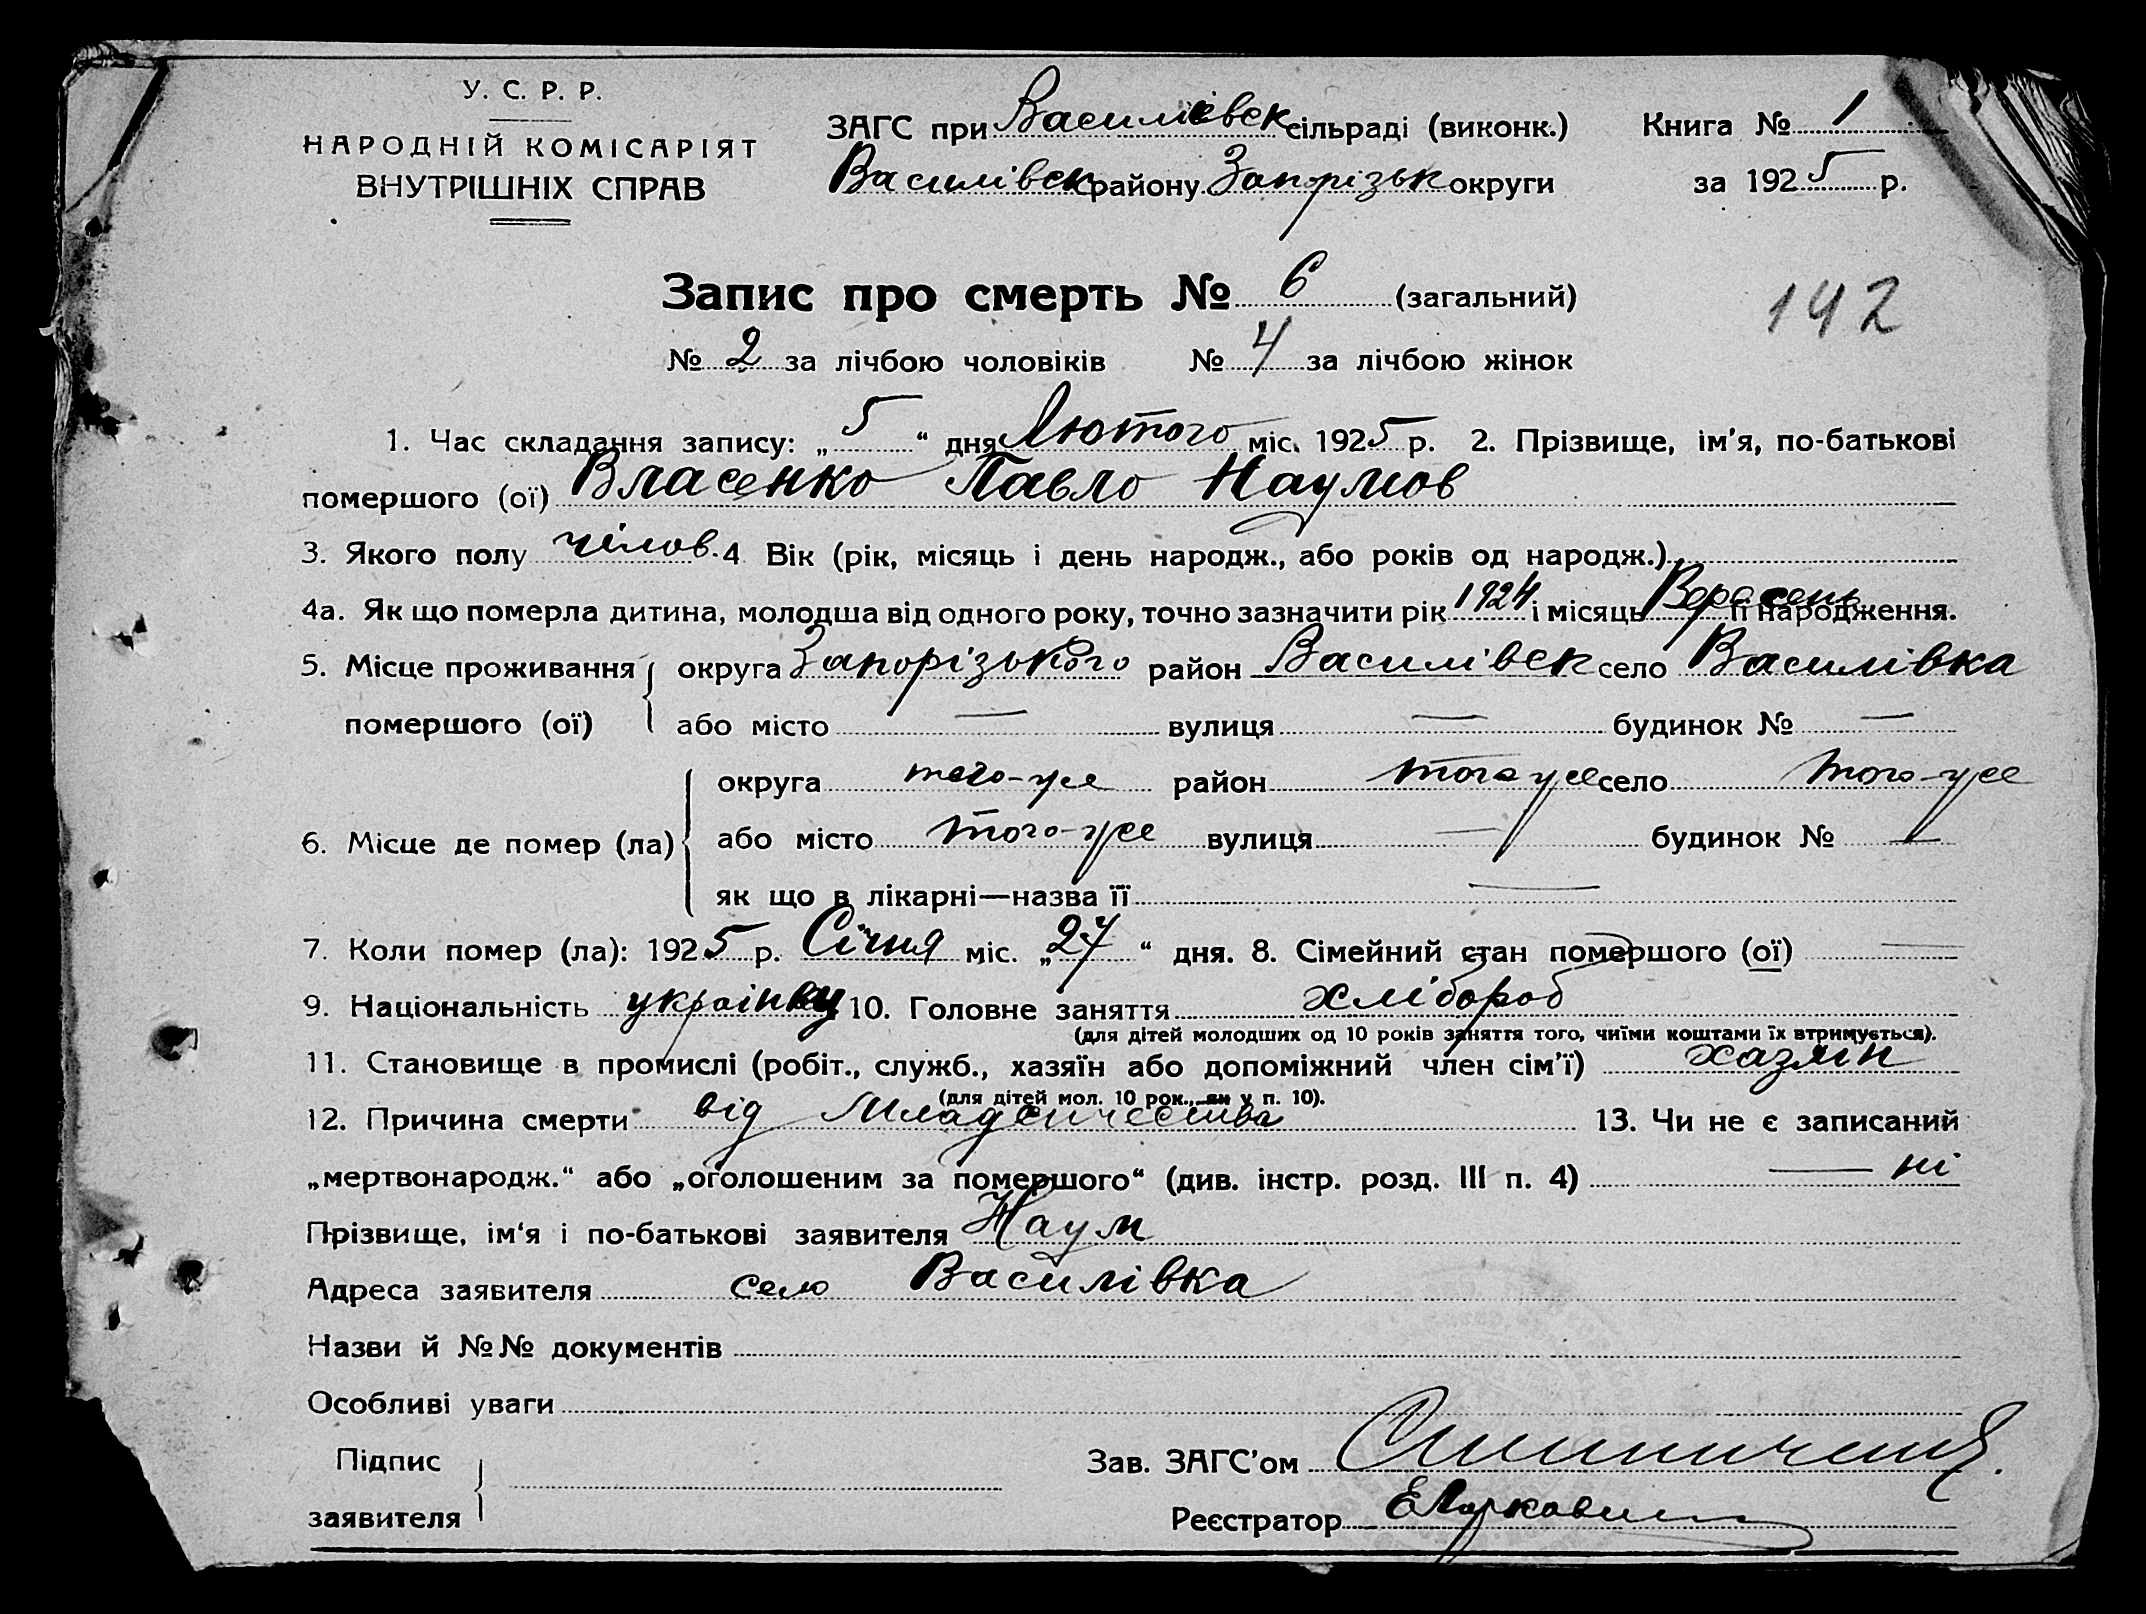 У. С. Р. Р.
НАРОДНІЙ КОМІСАРІЯТ
ВНУТРІШНІХ СПРАВ
ЗАГС при Василівск сільраді (виконк.) Книга № 1
Василівск району Запорізьк округи за 1925 р.
Запис про смерть № 6 (загальний)
142
№ 2 за лічбою чоловіків № 4 за лічбою жінок
1. Час складання запису: „5“ дня Лютого міс. 1925 р. 2. Прізвище, ім'я, по-батькові
помершого (ої) Власенко Павло Наумов
3. Якого полу чілов. 4 Вік (рік, місяць і день народж., або років од народж.)
4а. Як що померла дитина, молодша від одного року, точно зазначити рік 1924 і місяць Вересень її народження.
5. Місце проживання округа Запорізького район Василівск село Василівка
помершого (ої) або місто — вулиця — будинок № —
округа того-же район того же село того-же
6. Місце де помер (ла) або місто того-же вулиця — будинок № —
як що в лікарні—назва її —
7. Коли помер (ла): 1925 р. Січня міс. „27“ дня. 8. Сімейний стан помершого (ої) —
9. Національність 10. Головне заняття хлібороб
(для дітей молодших од 10 років заняття того, чиїми коштами їх втримується).
11. Становище в промислі (робіт., служб., хазяїн або допоміжний член сім'ї) хазяін
(для дітей мол. 10 рок., як у п. 10).
12. Причина смерти від Младенчества 13. Чи не є записаний
„мертвонародж.“ або „оголошеним за помершого“ (див. інстр. розд. III п. 4) — ні
Прізвище, ім'я і по-батькові заявителя Наум
Адреса заявителя село Василівка
Назви й №№ документів
Особливі уваги
Підпис
заявителя
Зав. ЗАГС'ом
Реєстратор